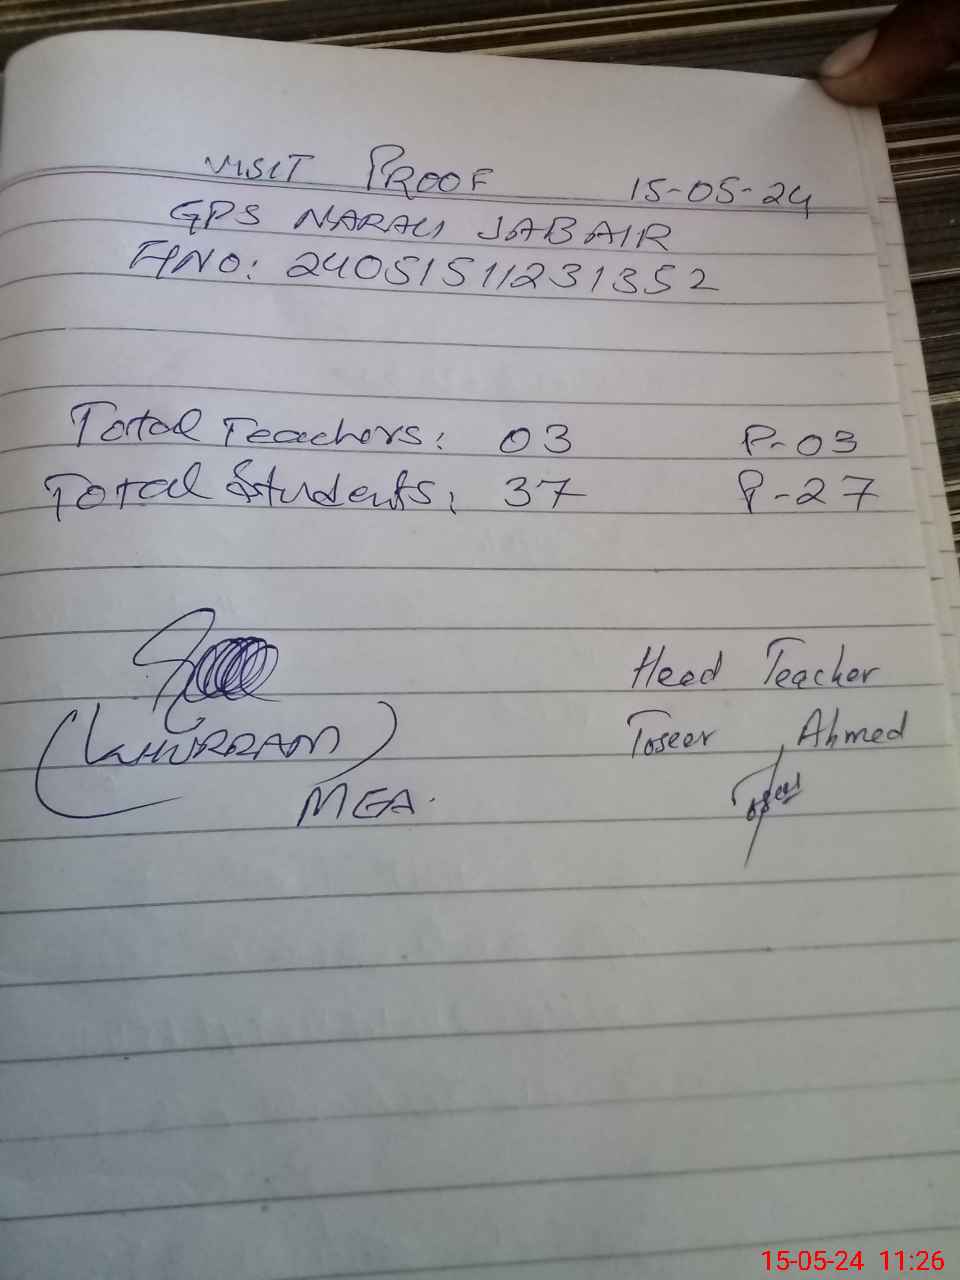 VISIT PROOF 15-05-24
GPS NARALI JABAIR
FNO: 24051511231352
Total Teachers: 03 P-03
Total Students: 37 P-27
Head Teacher
(KHURRAM) Toseer Ahmed
MEA.
15-05-24 11:26